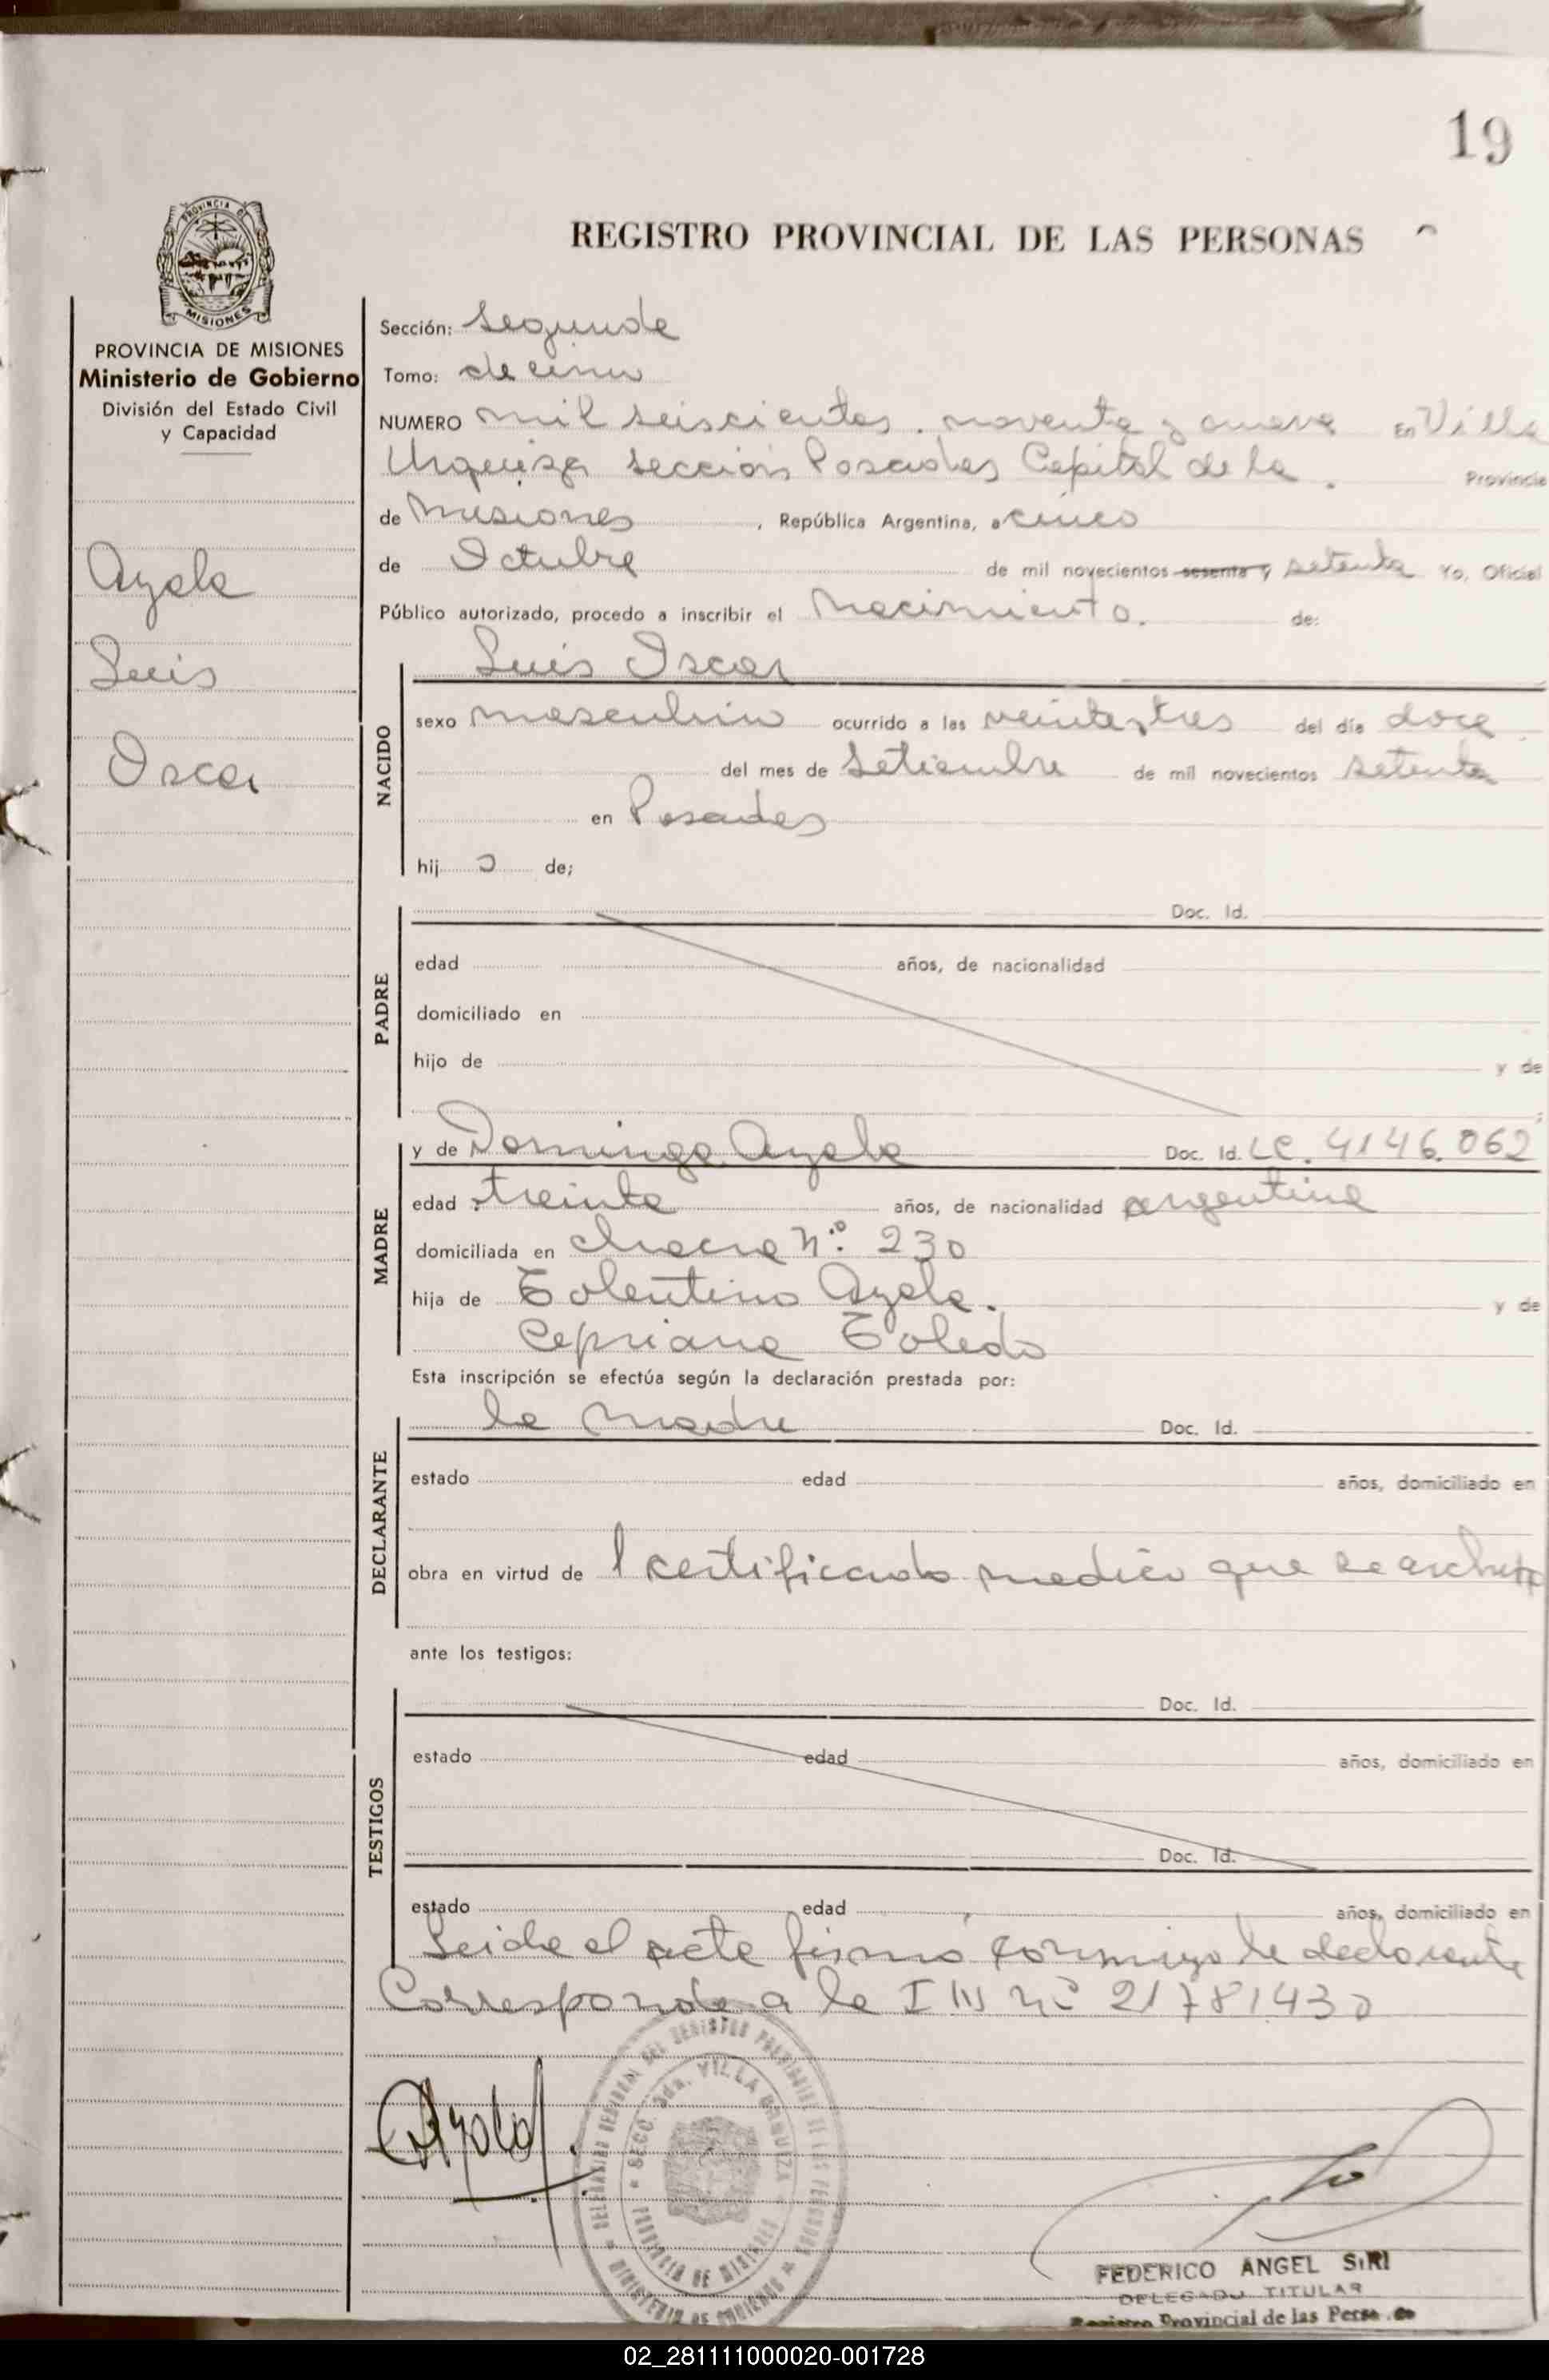 19
REGISTRO PROVINCIAL DE LAS PERSONAS
PROVINCIA DE
MISIONES
PROVINCIA DE MISIONES
Ministerio de Gobierno
División del Estado Civil
y Capacidad
Ayala
Luis
Oscar
Sección: Segunda
Tomo: decimo
NUMERO mil seiscientos noventa y nueve En Villa
Urquiza sección Posadas Capital de la Provincia
de Misiones , República Argentina, a cinco
de Octubre de mil novecientos sesenta y setenta Yo, Oficial
Público autorizado, procedo a inscribir el Nacimiento. de:
NACIDO
Luis Oscar
sexo masculino ocurrido a las veintitres del día doce
del mes de Setiembre de mil novecientos setenta
en Posadas
hij o de;
PADRE
Doc. Id.
edad años, de nacionalidad
domiciliado en
hijo de y de
MADRE
y de Dominga Ayala Doc. Id. LC. 4146.062
edad treinta años, de nacionalidad argentina
domiciliada en chacra Nº. 230
hija de Tolentino Ayala. y de
Cepriana Toledo
Esta inscripción se efectúa según la declaración prestada por:
DECLARANTE
la madre Doc. Id.
estado edad años, domiciliado en
obra en virtud de l certificado medico que se archiva
ante los testigos:
TESTIGOS
Doc. Id.
estado edad años, domiciliado en
Doc. Id.
estado edad años, domiciliado en
Leida el acta firmó conmigo la declarante
Corresponde a la Nº 21781430
Ayala
SECC. 2da. VILLA URQUIZA
PROVINCIA DE MISIONES
FEDERICO ANGEL SIRI
DELEGADO TITULAR
Registro Provincial de las Personas
02_281111000020-001728